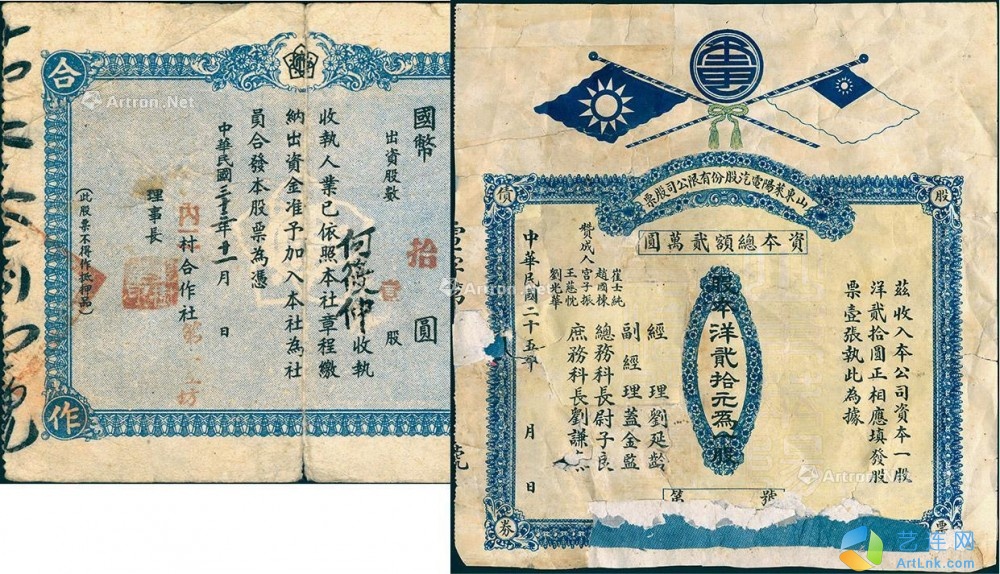 合
作
國幣
拾
圓
出資股數
壹
股
何筱仲
收執
收執人業已依照本社章程繳
納出資金准予加入本社為社
員合發本股票為憑
中華民國三十三年十一月 日
理事長
村合作社
第
坊
(此股票不得作抵押品)
號
Artron.Net
山東萊陽電汽股份有限公司股票
股
債
票
券
資本總額貳萬圓
茲收入本公司資本一股
洋貳拾圓正相應填發股
票壹張執此為據
股本洋貳拾元為一股
經理劉延齡
副經理蓋金監
總務科長尉子良
庶務科長劉謙
贊成人
崔士純
趙國棟
宮子振
王慈悅
劉光華
中華民國二十五年 月 日
第 號
Artron.Net
艺连网
ArtLnk.com